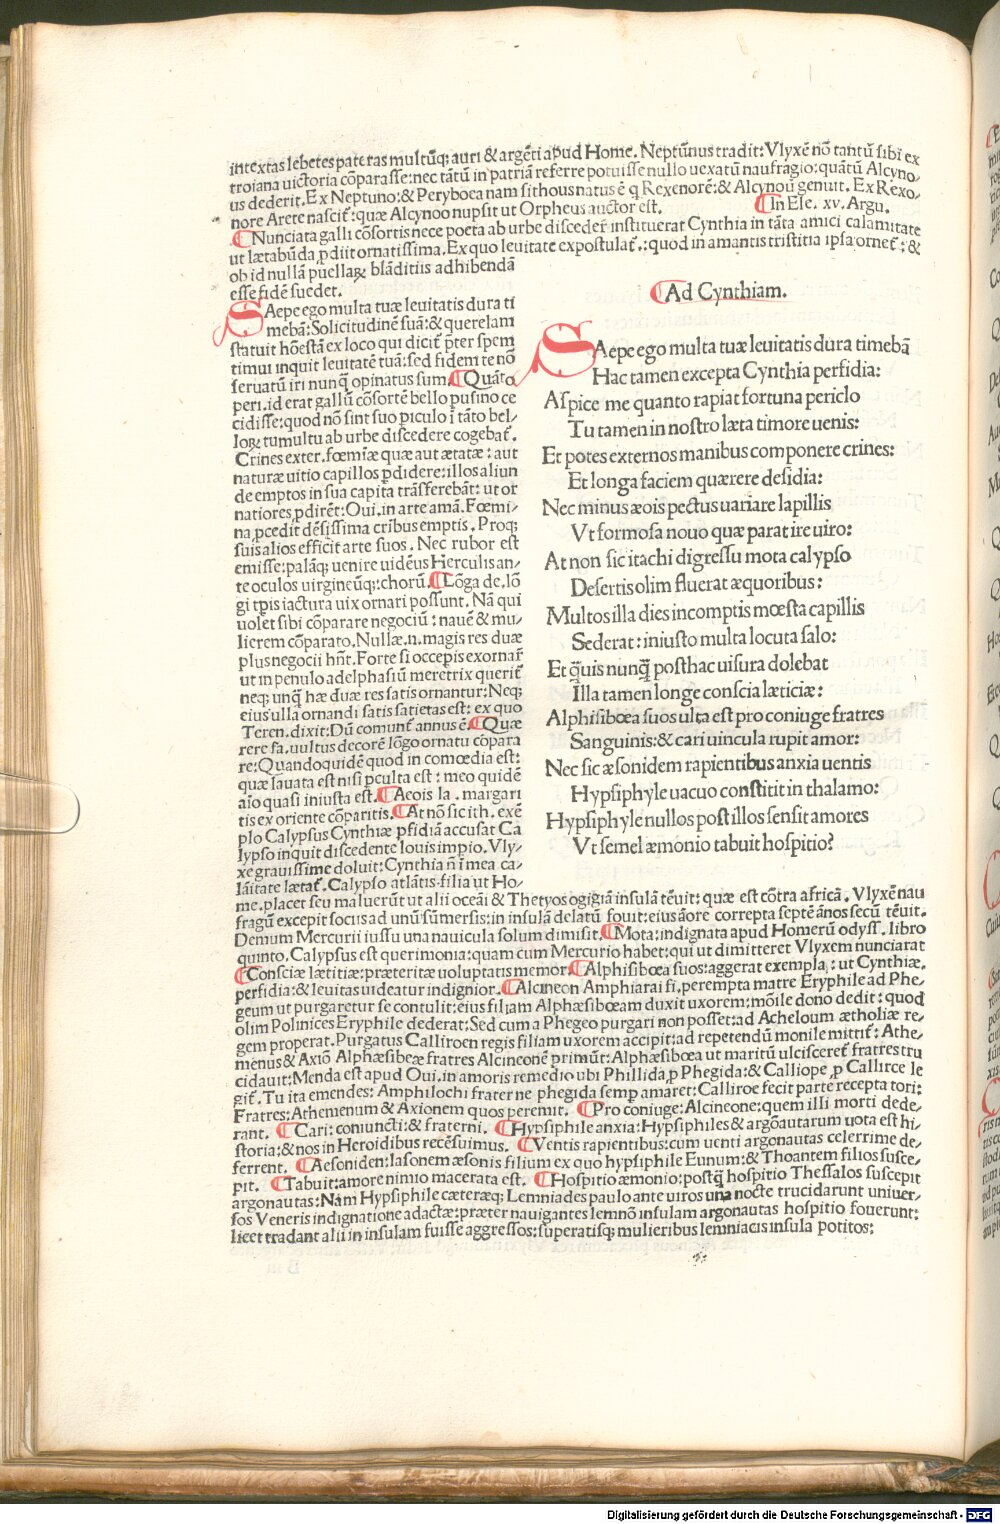 intextas lebetes pateras multũq; auri & argẽti apud Home. Neptũnus tradit: Vlyxẽ nõ tantũ sibi ex
troiana uictoria cõparasse: nec tãtũ in patriã referre potuisse nullo uexatũ naufragio: quãtũ Alcyno⸗
us dederit. Ex Neptuno: & Peryboea nam sithous natus ẽ q Rexenorẽ: & Alcynoũ genuit. Ex Rexo⸗
nore Arete nascit᷑: quæ Alcynoo nupsit ut Orpheus auctor est. ¶In Ele. xv. Argu.
¶Nunciata galli cõsortis nece poeta ab urbe discedere instituerat Cynthia in tãta amici calamitate
ut lætabũda ꝓdiit ornatissima. Ex quo leuitate expostulat᷑.: quod in amantis tristitia ipsa ornet᷑: &
ob id nullã puellaꝝ blãditiis adhibendã
esse fidẽ suedet.
SAepe ego multa tuæ leuitatis dura ti
mebã: Solicitudinẽ suã: & querelam
statuit hõestã ex loco qui dicit᷑ p̃ter spem
timui inquit leuitatẽ tuã: sed fidem te nõ
seruatũ iri nunq̃ opinatus sum. ¶Quãto
peri. id erat gallũ cõsortẽ bello pusino ce
cidisse: quod nõ sint suo piculo ĩ tãto bel⸗
loꝝ tumultu ab urbe discedere cogebat᷑.
Crines exter. fœmĩæ quæ aut ætatæ: aut
naturæ uitio capillos ꝑdidere: illos aliun
de emptos in sua capita trãsferebãt: ut or
natiores ꝓdirẽt: Oui. in arte amã. Fœmi⸗
na ꝓcedit dẽsissima cribus emptis. Proq;
suis alios efficit arte suos. Nec rubor est
emisse: palãq; uenire uidẽus Herculis an⸗
te oculos uirgineũq;: chorũ. ¶Lõga de. lõ
gi tp̃is iactura uix ornari possunt. Nã qui
uolet sibi cõparare negociũ: nauẽ & mu⸗
lierem cõparato. Nullæ.n. magis res duæ
plus negocii hñt. Forte si occepis exornar᷑
ut in penulo adelphasiũ meretrix querit᷑
neq; unq̃ hæ duæ res satis ornantur: Neq;
eius ulla ornandi satis satietas est: ex quo
Teren. dixit: Dũ comunt᷑ annus ẽ. ¶Quæ
rere fa. uultus decorẽ lõgo ornatu cõpara
re: Quandoquidẽ quod in comœdia est:
quæ lauata est nisi pculta est: meo quidẽ
aĩo quasi iniusta est. ¶Aeois la. margari
tis ex oriente cõparitis. ¶At nõ sic ith. exẽ
plo Calypsus Cynthiæ pfidiã accusat Ca
lypso inquit discedente louis impio. Vly⸗
xe grauissime doluit: Cynthia ñ ĩ mea ca⸗
lãitate lætat᷑. Calypso atlãtis filia ut Ho⸗
me. placet seu maluerũt ut alii oceãi & Thetyos ogigiã insulã tẽuit: quæ est cõtra africã. Vlyxẽ nau
fragũ excepit focus ad unũ sũmersis: in insulã delatũ fouit: eius ãore correpta septẽ ãnos secũ tẽuit.
Demum Mercurii iussu una nauicula solum dimisit. ¶Mota: indignata apud Homerũ odyss. libro
quinto. Calypsus est querimonia: quam cum Mercurio habet: qui ut dimitteret Vlyxem nunciarat
¶Consciæ lætitiæ: præteritæ uoluptatis memor. ¶Alphisibœa suos: aggerat exempla: ut Cynthiæ.
perfidia: & leuitas uideatur indignior. ¶Alcineon Amphiarai fi. perempta matre Eryphile ad Phe⸗
geum ut purgaretur se contulit: eius filiam Alphæsibœam duxit uxorem: mõile dono dedit: quod
olim Polinices Eryphile dederat: Sed cum a Phegeo purgari non posset: ad Acheloum ætholiæ re⸗
gem properat. Purgatus Calliroen regis filiam uxorem accipit: ad repetendũ monile mittit᷑: Athe⸗
menus & Axiõ Alphæsibeæ fratres Alcineonẽ primũt: Alphæsibœa ut maritũ ulcisceret᷑ fratres tru
cidauit: Menda est apud Oui. in amoris remedio ubi Phillida ꝓ Phegida: & Calliope ꝓ Callirce le
git᷑. Tu ita emendes: Amphilochi frater ne phegida semp amaret: Calliroe fecit parte recepta tori:
Fratres: Athemenum & Axionem quos peremit. ¶Pro coniuge: Alcineone: quem illi morti dede⸗
rant. ¶Cari: coniuncti: & fraterni. ¶Hypsiphile anxia: Hypsiphiles & argõautarum uota est hi⸗
storia: & nos in Heroidibus recẽsuimus. ¶Ventis rapientibus: cum uenti argonautas celerrime de⸗
ferrent. ¶Aesoniden: Iasonem æsonis filium ex quo hypsiphile Eunum: & Thoantem filios susce⸗
pit. ¶Tabuit: amore nimio macerata est. ¶Hospitio æmonio: postq̃ hospitio Thessalos suscepit
argonautas: Nam Hypsiphile cæteræq; Lemniades paulo ante uiros una nocte trucidarunt uniuer⸗
sos Veneris indignatione adactæ: præter nauigantes lemnõ insulam argonautas hospitio fouerunt:
licet tradant alii in insulam fuisse aggressos: superatisq; mulieribus lemniacis insula potitos:
¶Ad Cynthiam.
SAepe ego multa tuæ leuitatis dura timebã
Hac tamen excepta Cynthia perfidia:
Aspice me quanto rapiat fortuna periclo
Tu tamen in nostro læta timore uenis:
Et potes externos manibus componere crines:
Et longa faciem quærere desidia:
Nec minus æois pectus uariare lapillis
Vt formosa nouo quæ parat ire uiro:
At non sic itachi digressu mota calypso
Desertis olim fluerat æquoribus:
Multos illa dies incomptis mœsta capillis
Sederat: iniusto multa locuta salo:
Et q̃uis nunq̃ posthac uisura dolebat
Illa tamen longe conscia læticiæ:
Alphisibœa suos ulta est pro coniuge fratres
Sanguinis: & cari uincula rupit amor:
Nec sic æsonidem rapientibus anxia uentis
Hypsiphyle uacuo constitit in thalamo:
Hypsiphyle nullos post illos sensit amores
Vt semel æmonio tabuit hospitio?
Digitalisierung gefördert durch die Deutsche Forschungsgemeinschaft - DFG